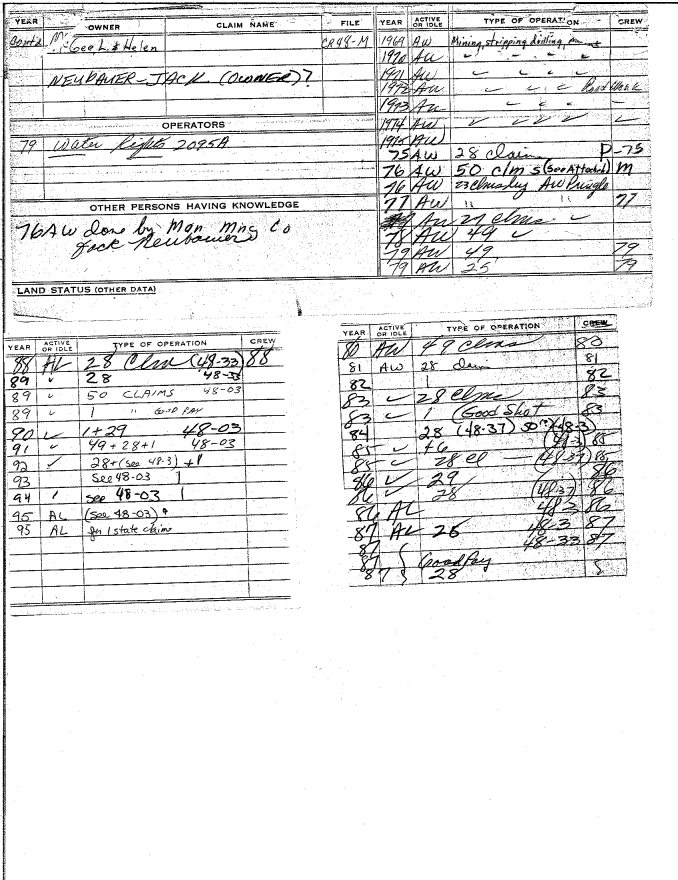 YEAR OWNER CLAIM NAME FILE
Gee L. & Helen CR48-M
NEUBAUER-JACK (OWNER)?
OPERATORS
79 Water Rights 2095A
OTHER PERSONS HAVING KNOWLEDGE
76 AW done by Man Mng Co
Jack Neubauer
LAND STATUS (OTHER DATA)
YEAR ACTIVE OR IDLE TYPE OF OPERATION CREW
1969 AW Mining, stripping drilling,
1970 AW " " " "
1971 AW ✓ ✓ ✓ ✓
1972 AW ✓ ✓ ✓ Road Work
1973 AW ✓ ✓ ✓ -
1974 AW ✓ ✓ ✓ ✓ ✓
1975 AW
75 AW 28 claim P-75
76 AW 50 clms (See Attached) M
76 AW 23 clms by AW Pringle
77 AW " " 77
AW 27 clms ✓
78 AW 49 ✓
79 AW 49 79
79 AW 25 79
YEAR ACTIVE OR IDLE TYPE OF OPERATION CREW
88 AL 28 Clm (48-33) 88
89 " 28 48-33
89 " 50 CLAIMS 48-03
89 " 1 " GOOD PAY
90 ✓ 1+29 48-03
91 " 49+28+1 48-03
92 ✓ 28+(see 48-3) +1
93 See 48-03 1
94 / see 48-03 1
95 AL (see 48-03)
95 AL for 1 state claim
YEAR ACTIVE OR IDLE TYPE OF OPERATION CREW
80 AW 49 Clms 80
81 AW 28 clam 81
82 1 82
83 ✓ 28 Clms 83
83 ✓ 1 (Good Shot 83
84 28 (48-37) 50 (48-3)
85 ✓ +6 (48-3) 85
85 ✓ 28 cl — (48-37) 85
86 ✓ 29 86
86 ✓ 28 (48-37) 86
86 AL 48-3 86
87 AL 26 48-3 87
87 48-33 87
87 Good Pay
87 28